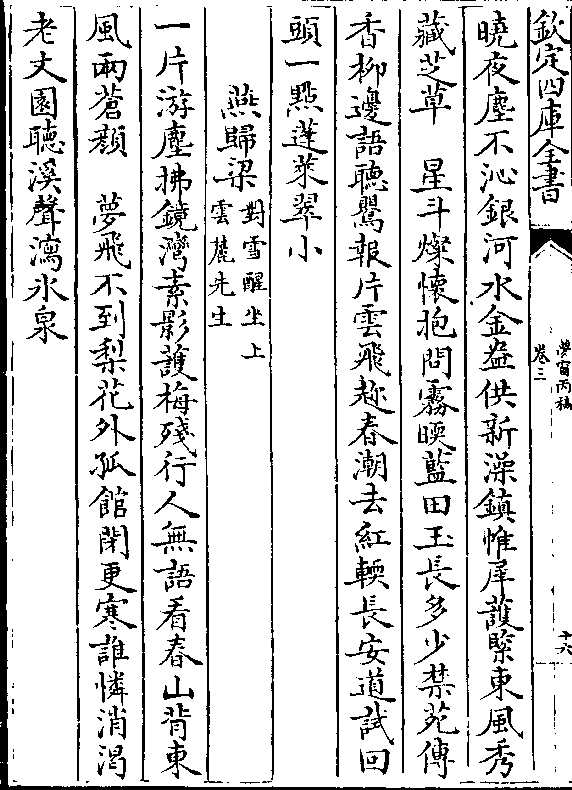 欽定四庫全書
夢窗丙稿
卷三
十六
曉夜塵不沁銀河水金盎供新澡鎮帷犀護緊東風秀
藏芝草　星斗燦懷抱問霧暖藍田玉長多少禁苑傳
香柳邊語聽鶯報片雲飛趂春潮去紅輭長安道試回
頭一㸃蓬萊翠小
燕歸梁對雪醒坐上
雲麓先生
一片游塵拂鏡灣素影護梅殘行人無語看春山背東
風兩蒼顔　夢飛不到梨花外孤館閉更寒誰憐消渴
老文園聽溪聲瀉氷泉